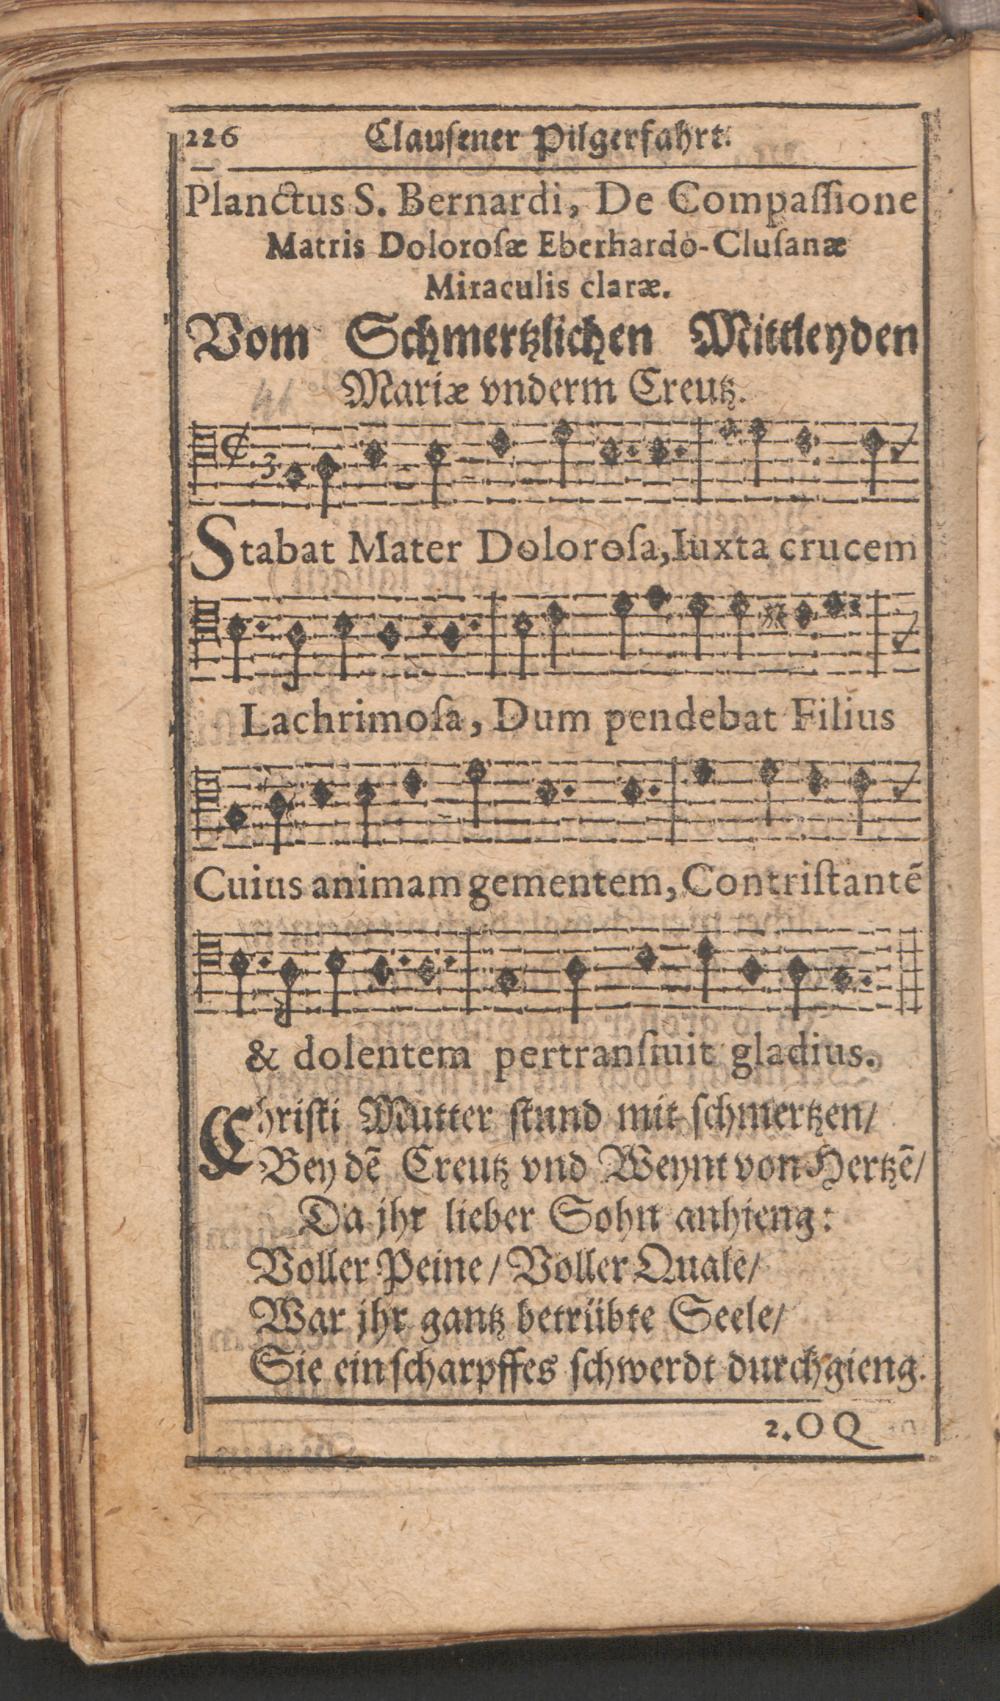 226 Clausener Pilgerfahrt.
Planctus S. Bernardi, De Compaſſione
Matris Doloroſæ Eberhardo-Cluſanæ
Miraculis claræ.
Vom Schmertzlichen Mittleyden
Mariæ vnderm Creutz.
3
Stabat Mater Doloroſa, Iuxta crucem
Lachrimoſa, Dum pendebat Filius
Cuius animam gementem, Contriſtantē
& dolentem pertranſiuit gladius.
Chriſti Mutter ſtund mit ſchmertzen/
Bey dē Creutz vnd Weynt von Hertzē/
Da jhr lieber Sohn anhieng:
Voller Peine/ Voller Quale/
War jhr gantz betrübte Seele/
Sie ein ſcharpffes ſchwerdt durchgieng.
2. O Q